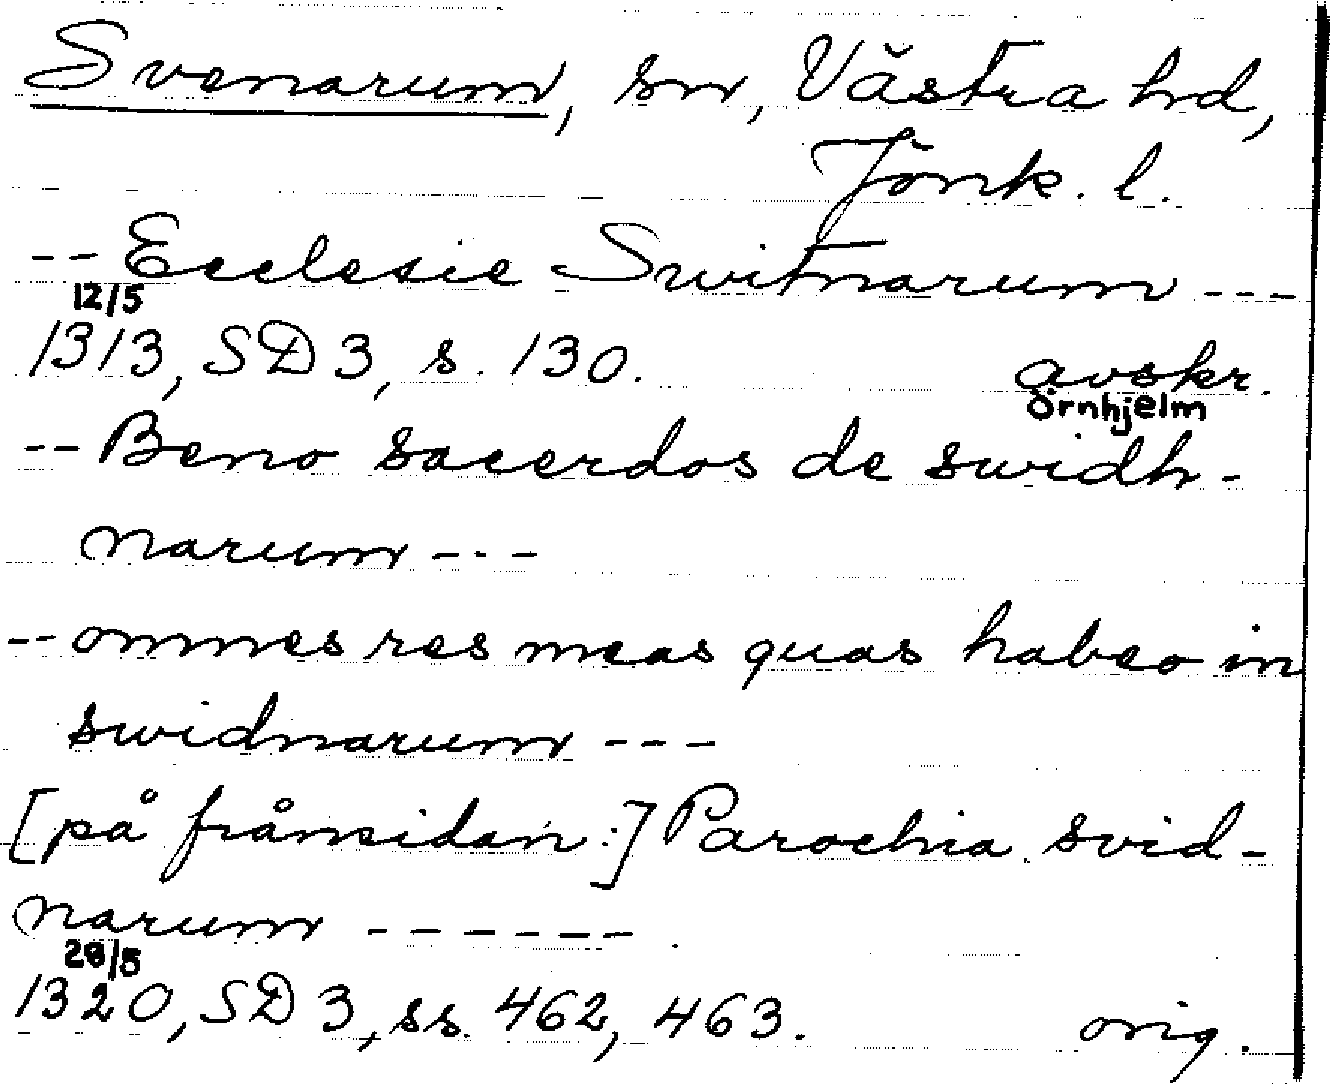 Svenarum, sn, Västra hd,
Jönk. l.
-- Ecclesie Switnarum ---
12/5
1313, SD 3, s. 130. avskr.
Örnhjelm
-- Beno sacerdos de swidh-
narum ---
-- omnes res meas quas habeo in
swidnarum ---
[på frånsidan:] Parochia svid-
narum ------
28/5
1320, SD 3, ss. 462, 463. orig.